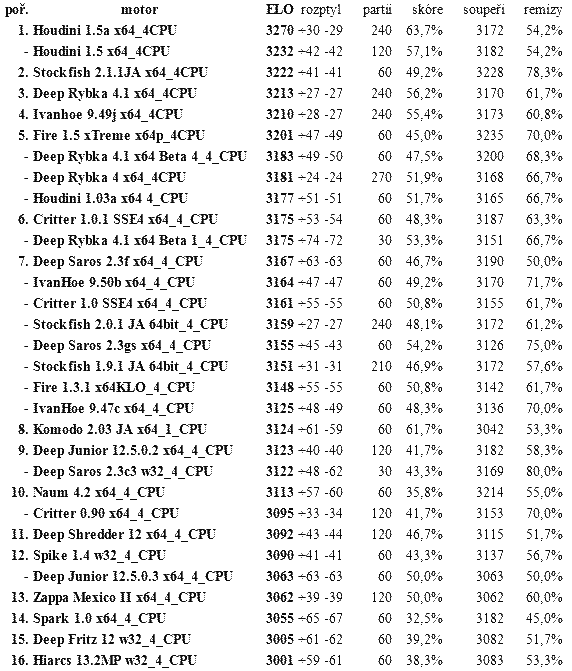 poř. motor ELO rozptyl partií skóre soupeři remízy
1. Houdini 1.5a x64_4CPU 3270 +30 -29 240 63,7% 3172 54,2%
- Houdini 1.5 x64_4CPU 3232 +42 -42 120 57,1% 3182 54,2%
2. Stockfish 2.1.1JA x64_4CPU 3222 +41 -41 60 49,2% 3228 78,3%
3. Deep Rybka 4.1 x64_4CPU 3213 +27 -27 240 56,2% 3170 61,7%
4. Ivanhoe 9.49j x64_4CPU 3210 +28 -27 240 55,4% 3173 60,8%
5. Fire 1.5 xTreme x64p_4CPU 3201 +47 -49 60 45,0% 3235 70,0%
- Deep Rybka 4.1 x64 Beta 4_4_CPU 3183 +49 -50 60 47,5% 3200 68,3%
- Deep Rybka 4 x64_4CPU 3181 +24 -24 270 51,9% 3168 66,7%
- Houdini 1.03a x64 4_CPU 3177 +51 -51 60 51,7% 3165 66,7%
6. Critter 1.0.1 SSE4 x64_4_CPU 3175 +53 -54 60 48,3% 3187 63,3%
- Deep Rybka 4.1 x64 Beta 1_4_CPU 3175 +74 -72 30 53,3% 3151 66,7%
7. Deep Saros 2.3f x64_4_CPU 3167 +63 -63 60 46,7% 3190 50,0%
- IvanHoe 9.50b x64_4_CPU 3164 +47 -47 60 49,2% 3170 71,7%
- Critter 1.0 SSE4 x64_4_CPU 3161 +55 -55 60 50,8% 3155 61,7%
- Stockfish 2.0.1 JA 64bit_4_CPU 3159 +27 -27 240 48,1% 3172 61,2%
- Deep Saros 2.3gs x64_4_CPU 3155 +45 -43 60 54,2% 3126 75,0%
- Stockfish 1.9.1 JA 64bit_4_CPU 3151 +31 -31 210 46,9% 3172 57,6%
- Fire 1.3.1 x64KLO_4_CPU 3148 +55 -55 60 50,8% 3142 61,7%
- IvanHoe 9.47c x64_4_CPU 3125 +48 -49 60 48,3% 3136 70,0%
8. Komodo 2.03 JA x64_1_CPU 3124 +61 -59 60 61,7% 3042 53,3%
9. Deep Junior 12.5.0.2 x64_4_CPU 3123 +40 -40 120 41,7% 3182 58,3%
- Deep Saros 2.3c3 w32_4_CPU 3122 +48 -62 30 43,3% 3169 80,0%
10. Naum 4.2 x64_4_CPU 3113 +57 -60 60 35,8% 3214 55,0%
- Critter 0.90 x64_4_CPU 3095 +33 -34 120 41,7% 3153 70,0%
11. Deep Shredder 12 x64_4_CPU 3092 +43 -44 120 46,7% 3115 51,7%
12. Spike 1.4 w32_4_CPU 3090 +41 -41 60 43,3% 3137 56,7%
- Deep Junior 12.5.0.3 x64_4_CPU 3063 +63 -63 60 50,0% 3063 50,0%
13. Zappa Mexico II x64_4_CPU 3062 +39 -39 120 50,0% 3062 60,0%
14. Spark 1.0 x64_4_CPU 3055 +65 -67 60 32,5% 3182 45,0%
15. Deep Fritz 12 w32_4_CPU 3005 +61 -62 60 39,2% 3082 51,7%
16. Hiarcs 13.2MP w32_4_CPU 3001 +59 -61 60 38,3% 3083 53,3%